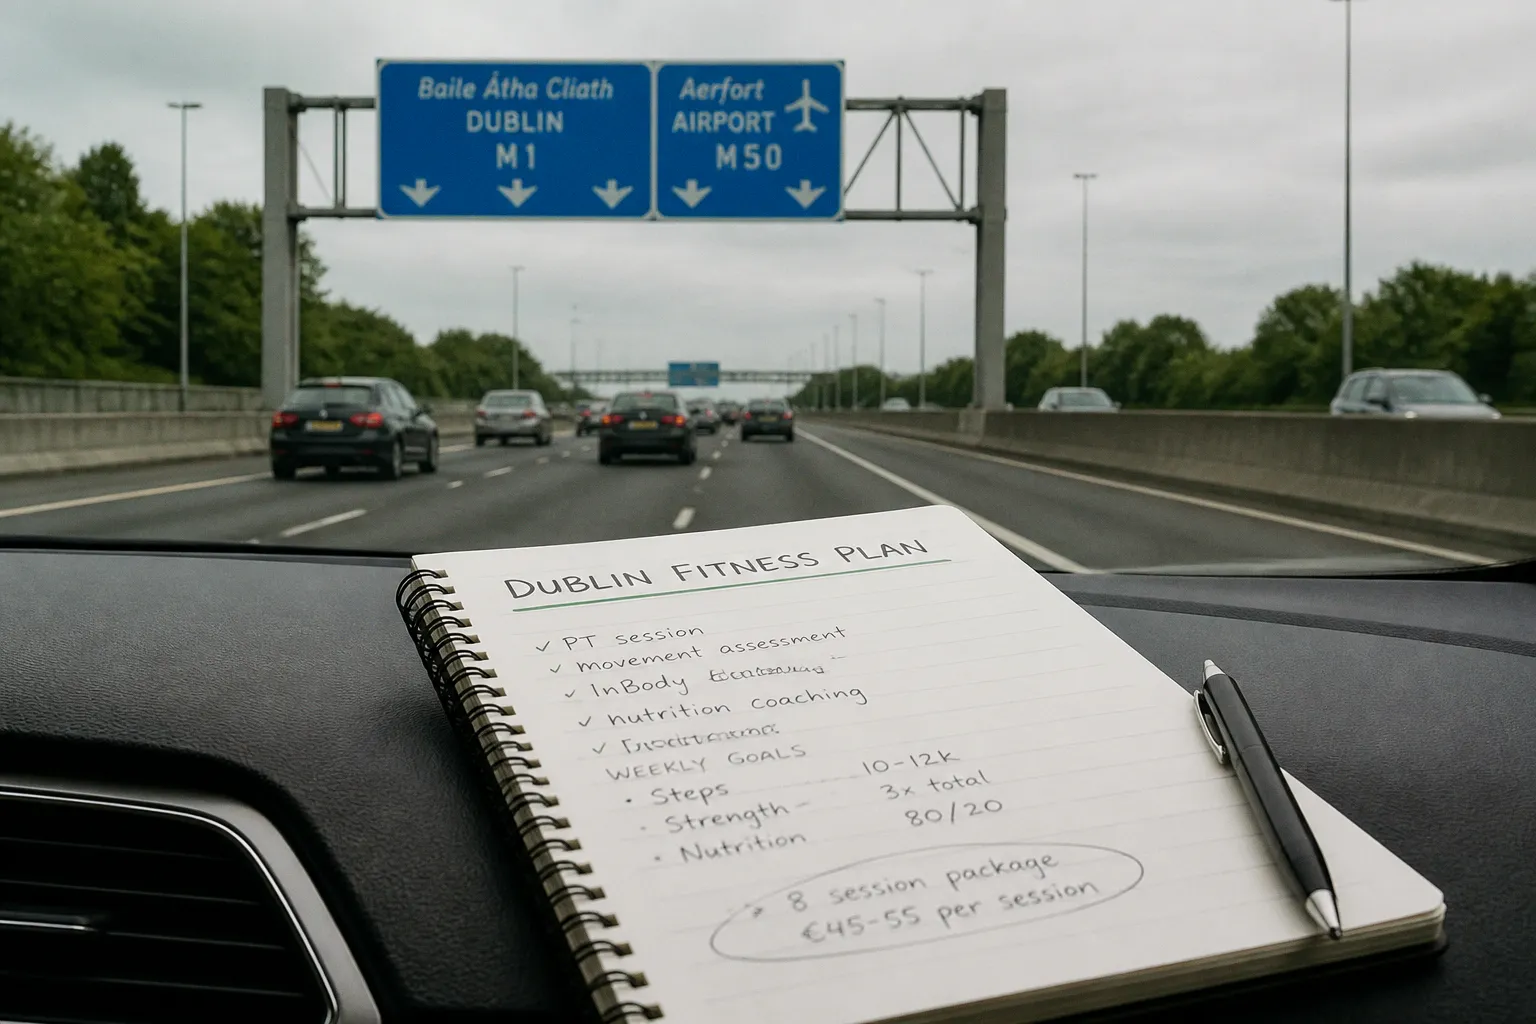 Baile Átha Cliath
DUBLIN
M1
Aerfort
AIRPORT
M50
DUBLIN FITNESS PLAN
✓ PT session
✓ movement assessment
✓ InBody
✓ nutrition coaching
✓
WEEKLY GOALS
• Steps 10-12k
• Strength - 3x total
• Nutrition 80/20
* 8 session package
€45-55 per session